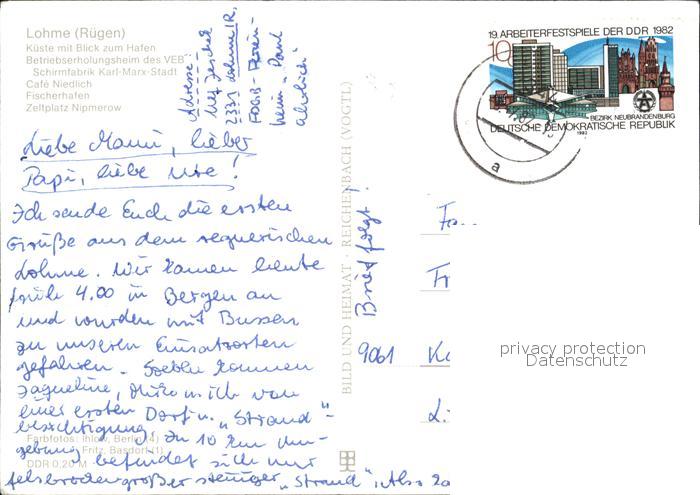 Lohme (Rügen)
Küste mit Blick zum Hafen
Betriebserholungsheim des VEB
Schirmfabrik Karl-Marx-Stadt
Café Niedlich
Fischerhafen
Zeltplatz Nipmerow
Adresse:
2331 Lohme/R.
heim "Paul
19. ARBEITERFESTSPIELE DER DDR 1982
10
BEZIRK NEUBRANDENBURG
DEUTSCHE DEMOKRATISCHE REPUBLIK
1982
a
Liebe Mami, lieber
Papi, liebe Ute!
Ich sende Euch die ersten
Grüße aus dem regnerischen
Lohme. Wir kamen heute
früh 4.00 in Bergen an
und wurden mit Bussen
zu unseren Einsatzorten
gefahren. Soeben kommen
Jaqueline, Heiko u. ich von
einer ersten Dorf- u. "Strand"-
besichtigung. In 10 km Um-
gebung befindet sich nur
felsbrockengroßer steiniger "Strand". Also
Farbfotos: Ihlow, Berlin (4)
Fritz, Basdorf (1)
DDR 0,20 M
BILD UND HEIMAT · REICHENBACH (VOGTL)
Brief folgt!
Fa...
9061
privacy protection
Datenschutz